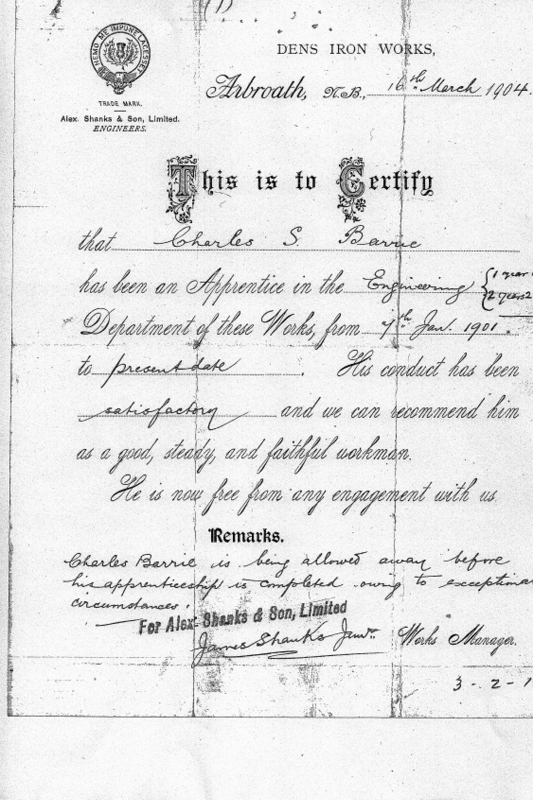 NEMO ME IMPUNE LACESSET
TRADE MARK.
Alex. Shanks & Son, Limited.
ENGINEERS.
DENS IRON WORKS,
Arbroath, N.B., 16th March 1904.
This is to Certify
that Charles S. Barrie
has been an Apprentice in the Engineering { 1 year
2 years
Department of these Works, from 7th Jan. 1901.
to present date. His conduct has been
satisfactory and we can recommend him
as a good, steady, and faithful workman.
He is now free from any engagement with us.
Remarks.
Charles Barrie is being allowed away before
his apprenticeship is completed owing to exceptional
circumstances.
For Alex. Shanks & Son, Limited
James Shanks Junr. Works Manager.
3-2-1